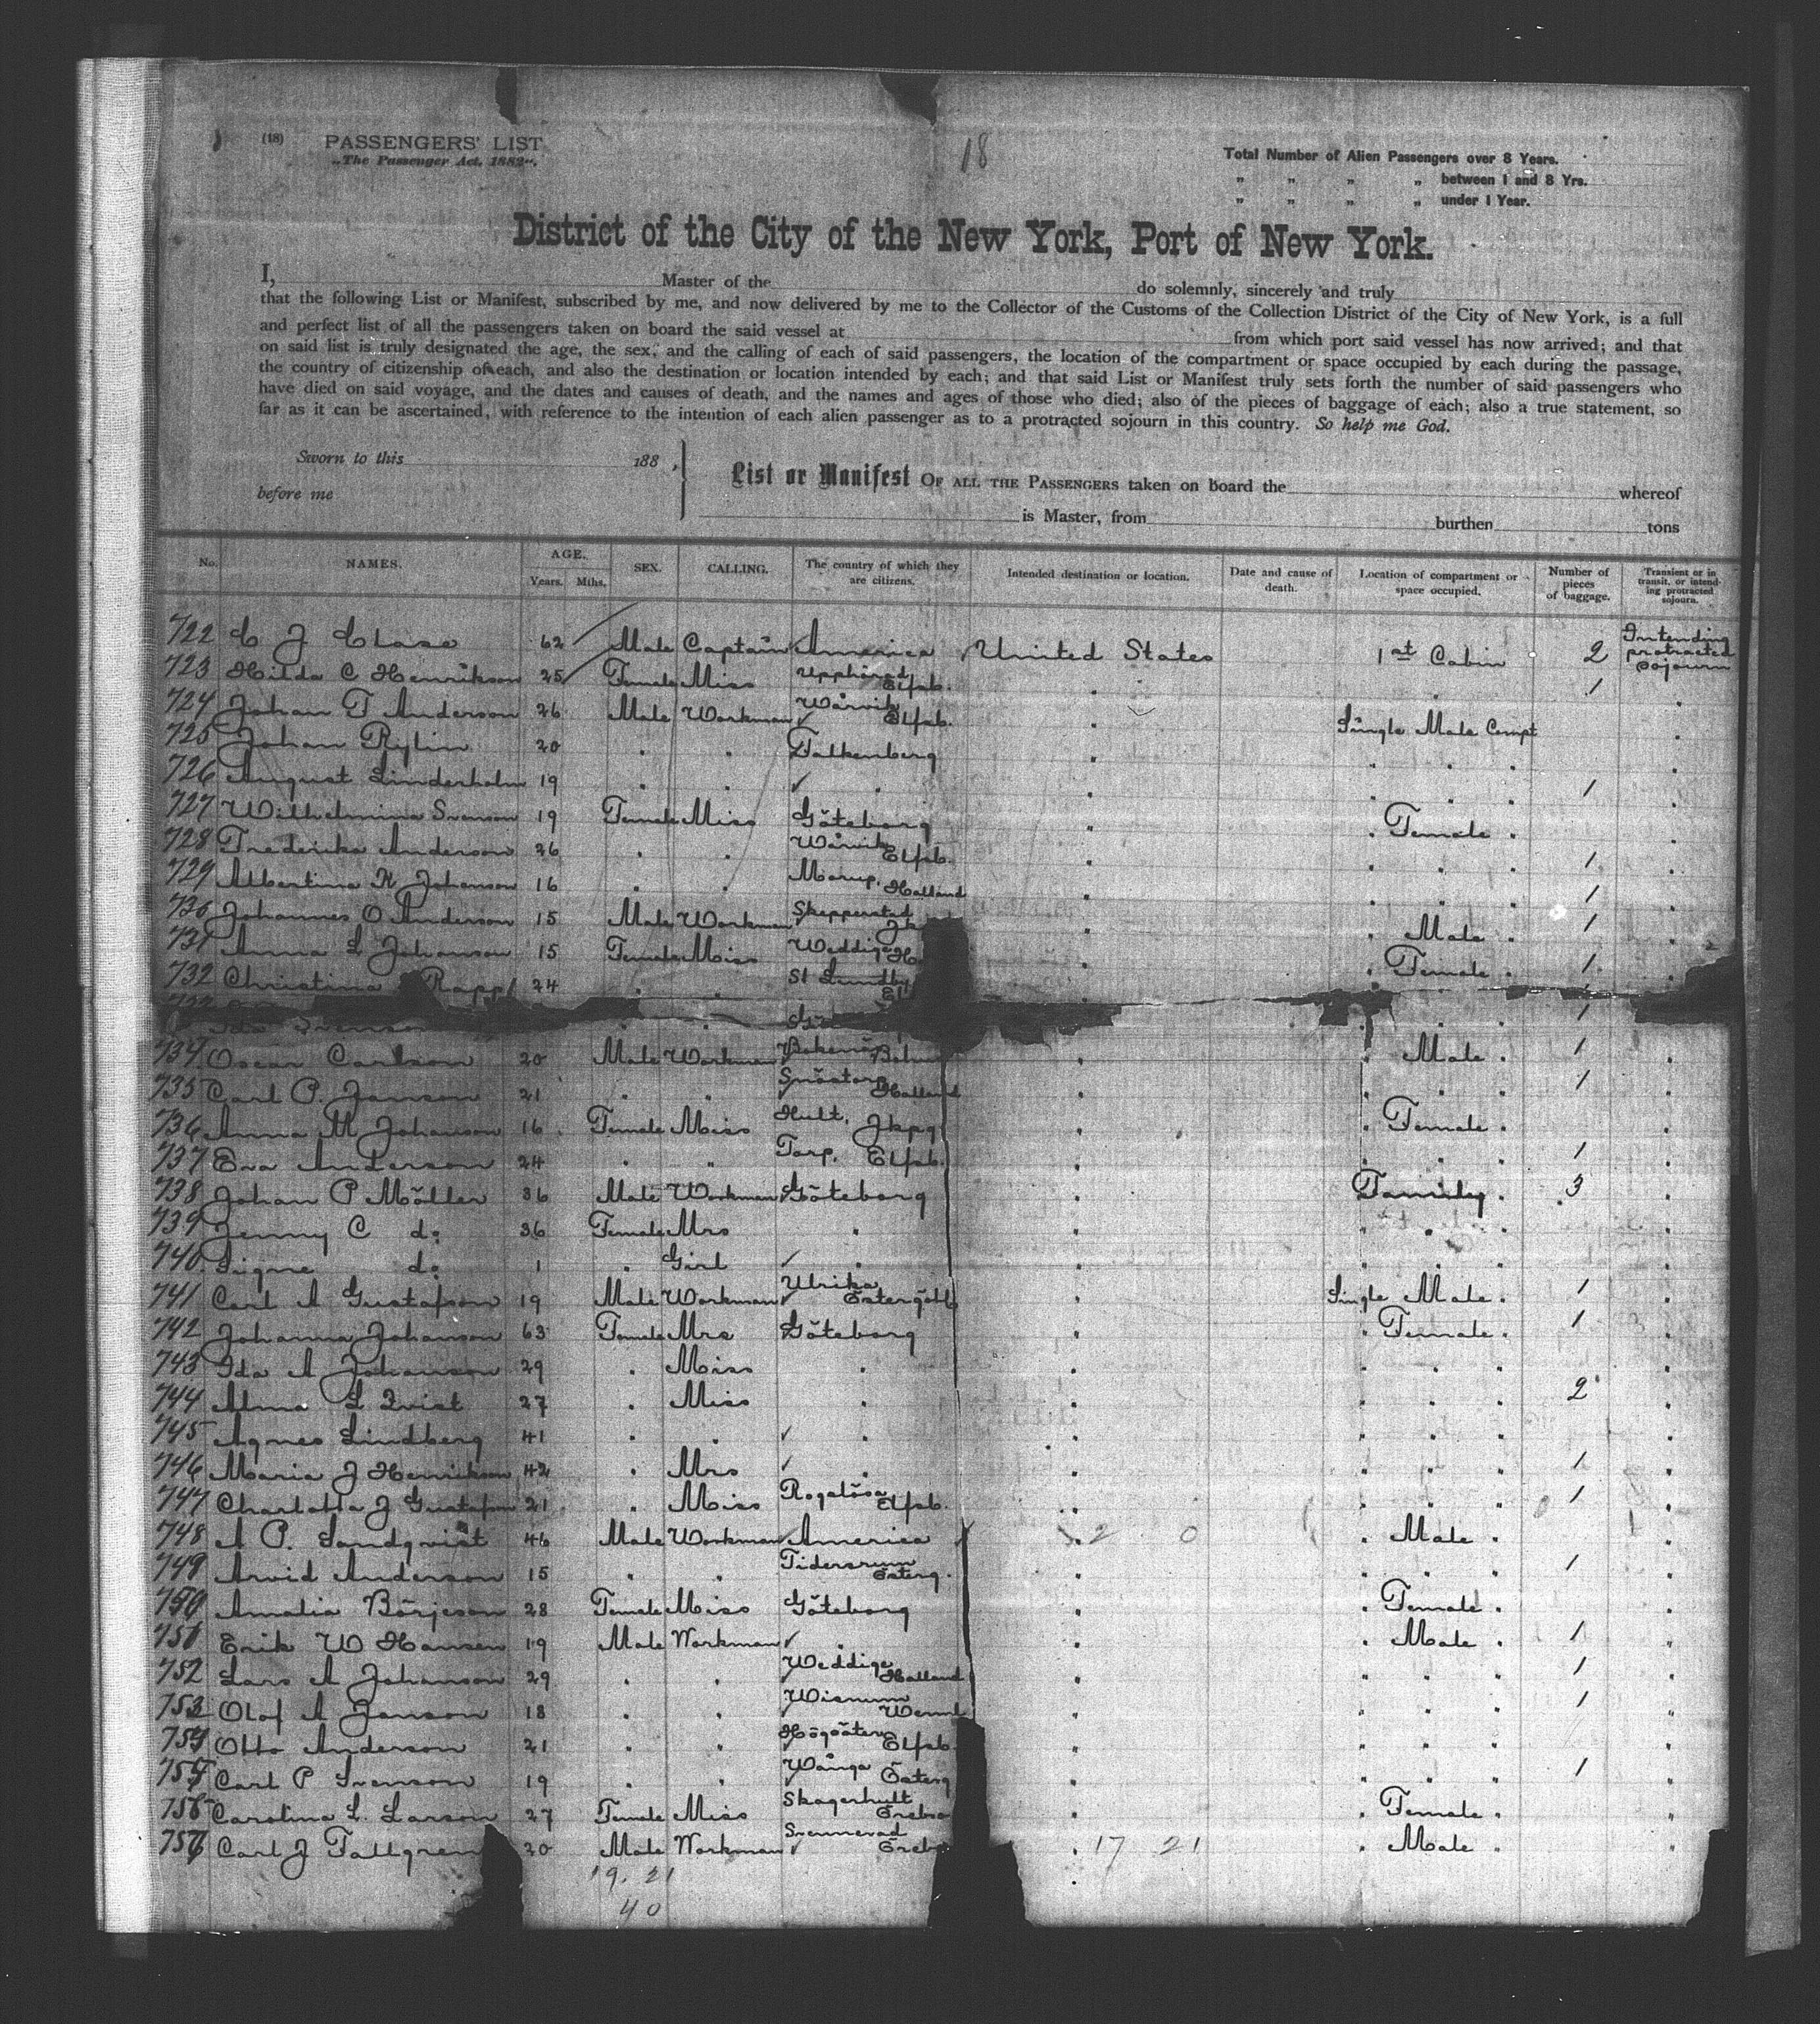 (18) PASSENGERS' LIST
„The Passenger Act, 1882".
18
Total Number of Alien Passengers over 8 Years.
„ „ „ „ between 1 and 8 Yrs.
„ „ „ „ under 1 Year.
District of the City of the New York, Port of New York.
I, Master of the do solemnly, sincerely and truly
that the following List or Manifest, subscribed by me, and now delivered by me to the Collector of the Customs of the Collection District of the City of New York, is a full
and perfect list of all the passengers taken on board the said vessel at from which port said vessel has now arrived; and that
on said list is truly designated the age, the sex, and the calling of each of said passengers, the location of the compartment or space occupied by each during the passage,
the country of citizenship of each, and also the destination or location intended by each; and that said List or Manifest truly sets forth the number of said passengers who
have died on said voyage, and the dates and causes of death, and the names and ages of those who died; also of the pieces of baggage of each; also a true statement, so
far as it can be ascertained, with reference to the intention of each alien passenger as to a protracted sojourn in this country. So help me God.
Sworn to this 188 ,
before me
List or Manifest OF ALL THE PASSENGERS taken on board the whereof
is Master, from burthen tons
No. NAMES. AGE. Years. Mths. SEX. CALLING. The country of which they are citizens. Intended destination or location. Date and cause of death. Location of compartment or space occupied. Number of pieces of baggage. Transient or in transit, or intending protracted sojourn.
722 C J Clase 62 Male Captain America United States 1st Cabin 2 Intending protracted sojourn
723 Hilda C Henrikson 25 Female Miss Upphärad Elfsb. " " 1 "
724 Johan T Anderson 26 Male Workman Wårvik Elfsb. " Single Male Compt "
725 Johan Rylin 20 " " Falkenberg " " " " "
726 August Linderholm 19 " " " " " " " 1 "
727 Wilhelmina Svenson 19 Female Miss Göteborg " " Female " "
728 Frederika Anderson 26 " " Wårvik Elfsb. " " " " 1 "
729 Albertina K Johanson 16 " " Morup, Halland " " " " 1 "
730 Johannes O Anderson 15 Male Workman Skepperstad Jk " " Male " 1 "
731 Anna L Johanson 15 Female Miss Weddige Ha " " Female " 1 "
732 Christina Rapp 24 " " St Lundby El " " "
Ida Svenson " " Gö " " 1
734 Oscar Carlson 20 Male Workman Bokenäs Bohu " " Male " 1 "
735 Carl P. Janson 21 " " Snöstorp Halland " " " " 1 "
736 Anna M Johanson 16 Female Miss Hult, Jkpg " " Female " "
737 Eva Anderson 24 " " Torp, Elfsb. " " " " 1 "
738 Johan P Möller 36 Male Workman Göteborg " Family " 3 "
739 Jenny C do 36 Female Mrs " " " " "
740 Signe do 1 " Girl " " " " " "
741 Carl A Gustafson 19 Male Workman Ulrika Östergötl " Single Male " 1 "
742 Johanna Johanson 63 Female Mrs Göteborg " " Female " 1 "
743 Ida A Johanson 29 " Miss " " " " " "
744 Alma L Qvist 27 " Miss " " " " " 2 "
745 Agnes Lindberg 41 " " " " " " " "
746 Maria J Henrikson 42 " Mrs " " " " " 1 "
747 Charlotta J Gustafson 21 " Miss Rogslösa Elfsb. " " " " 1 "
748 A P. Sandqvist 46 Male Workman America " 2 0 " Male " "
749 Arvid Anderson 15 " " Tidersrum Österg. " " " " 1 "
750 Amalia Börjeson 28 Female Miss Göteborg " " Female " "
751 Erik W Hansen 19 Male Workman " " " Male " 1 "
752 Lars A Johanson 29 " " Weddige Halland " " " " 1 "
753 Olof A Janson 18 " " Wisnum Werml " " " " 1 "
754 Otto Anderson 21 " " Högsäter Elfsb. " " " " "
755 Carl P Svenson 19 " " Wånga Österg " " " " 1 "
756 Carolina L. Larson 27 Female Miss Skagershult Örebro " " Female " "
757 Carl J Fallgren 20 Male Workman Svennevad Örebr " 17 21 " Male " "
19. 21
40